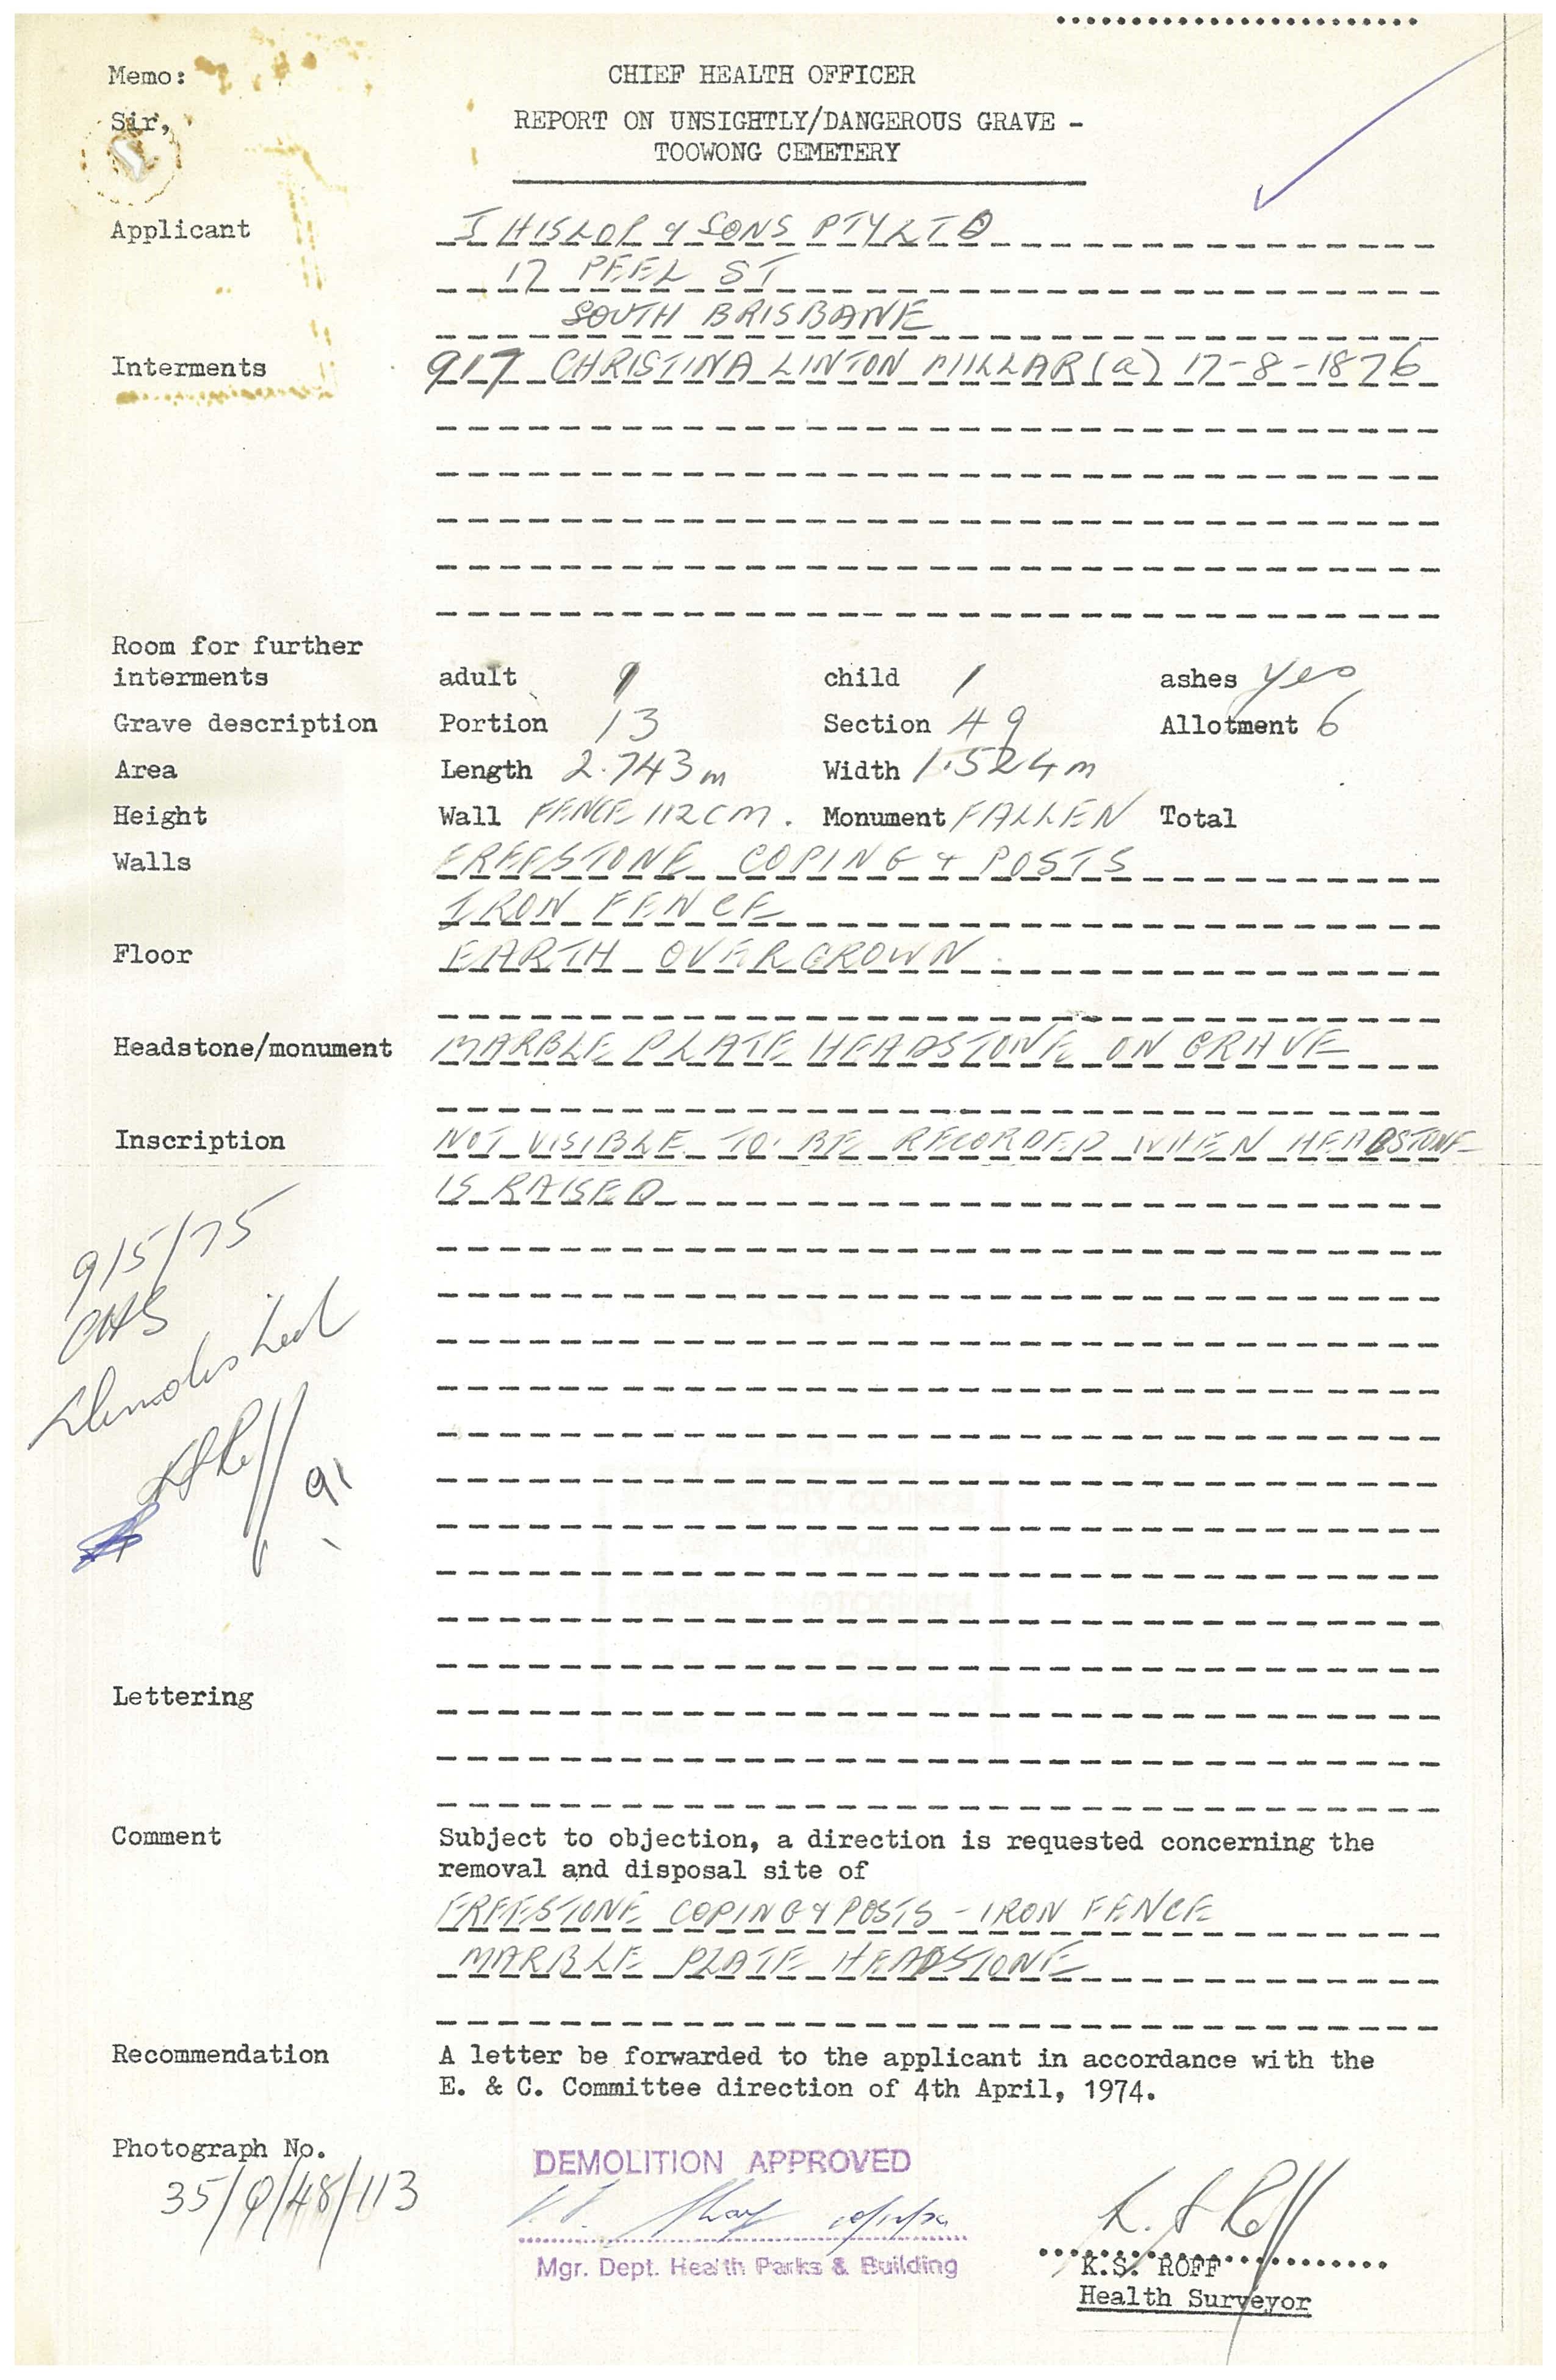 Memo:
CHIEF HEALTH OFFICER
Sir,
REPORT ON UNSIGHTLY/DANGEROUS GRAVE -
TOOWONG CEMETERY
Applicant J HISLOP & SONS PTY LTD
17 PEEL ST
SOUTH BRISBANE
Interments 917 CHRISTINA LINTON MILLAR (a) 17-8-1876
Room for further
interments adult 1 child 1 ashes yes
Grave description Portion 13 Section 49 Allotment 6
Area Length 2.743m Width 1.524m
Height Wall FENCE 112CM. Monument FALLEN Total
Walls FREESTONE COPING & POSTS
IRON FENCE
Floor EARTH OVERGROWN
Headstone/monument MARBLE PLATE HEADSTONE ON GRAVE
Inscription NOT VISIBLE TO BE RECORDED WHEN HEADSTONE
IS RAISED
9/5/75
CHS
Demolished
Lettering
Comment Subject to objection, a direction is requested concerning the
removal and disposal site of
FREESTONE COPING & POSTS - IRON FENCE
MARBLE PLATE HEADSTONE
Recommendation A letter be forwarded to the applicant in accordance with the
E. & C. Committee direction of 4th April, 1974.
Photograph No.
35/Q/48/113
DEMOLITION APPROVED
Mgr. Dept. Health Parks & Building
K.S. Roff
K.S. ROFF
Health Surveyor